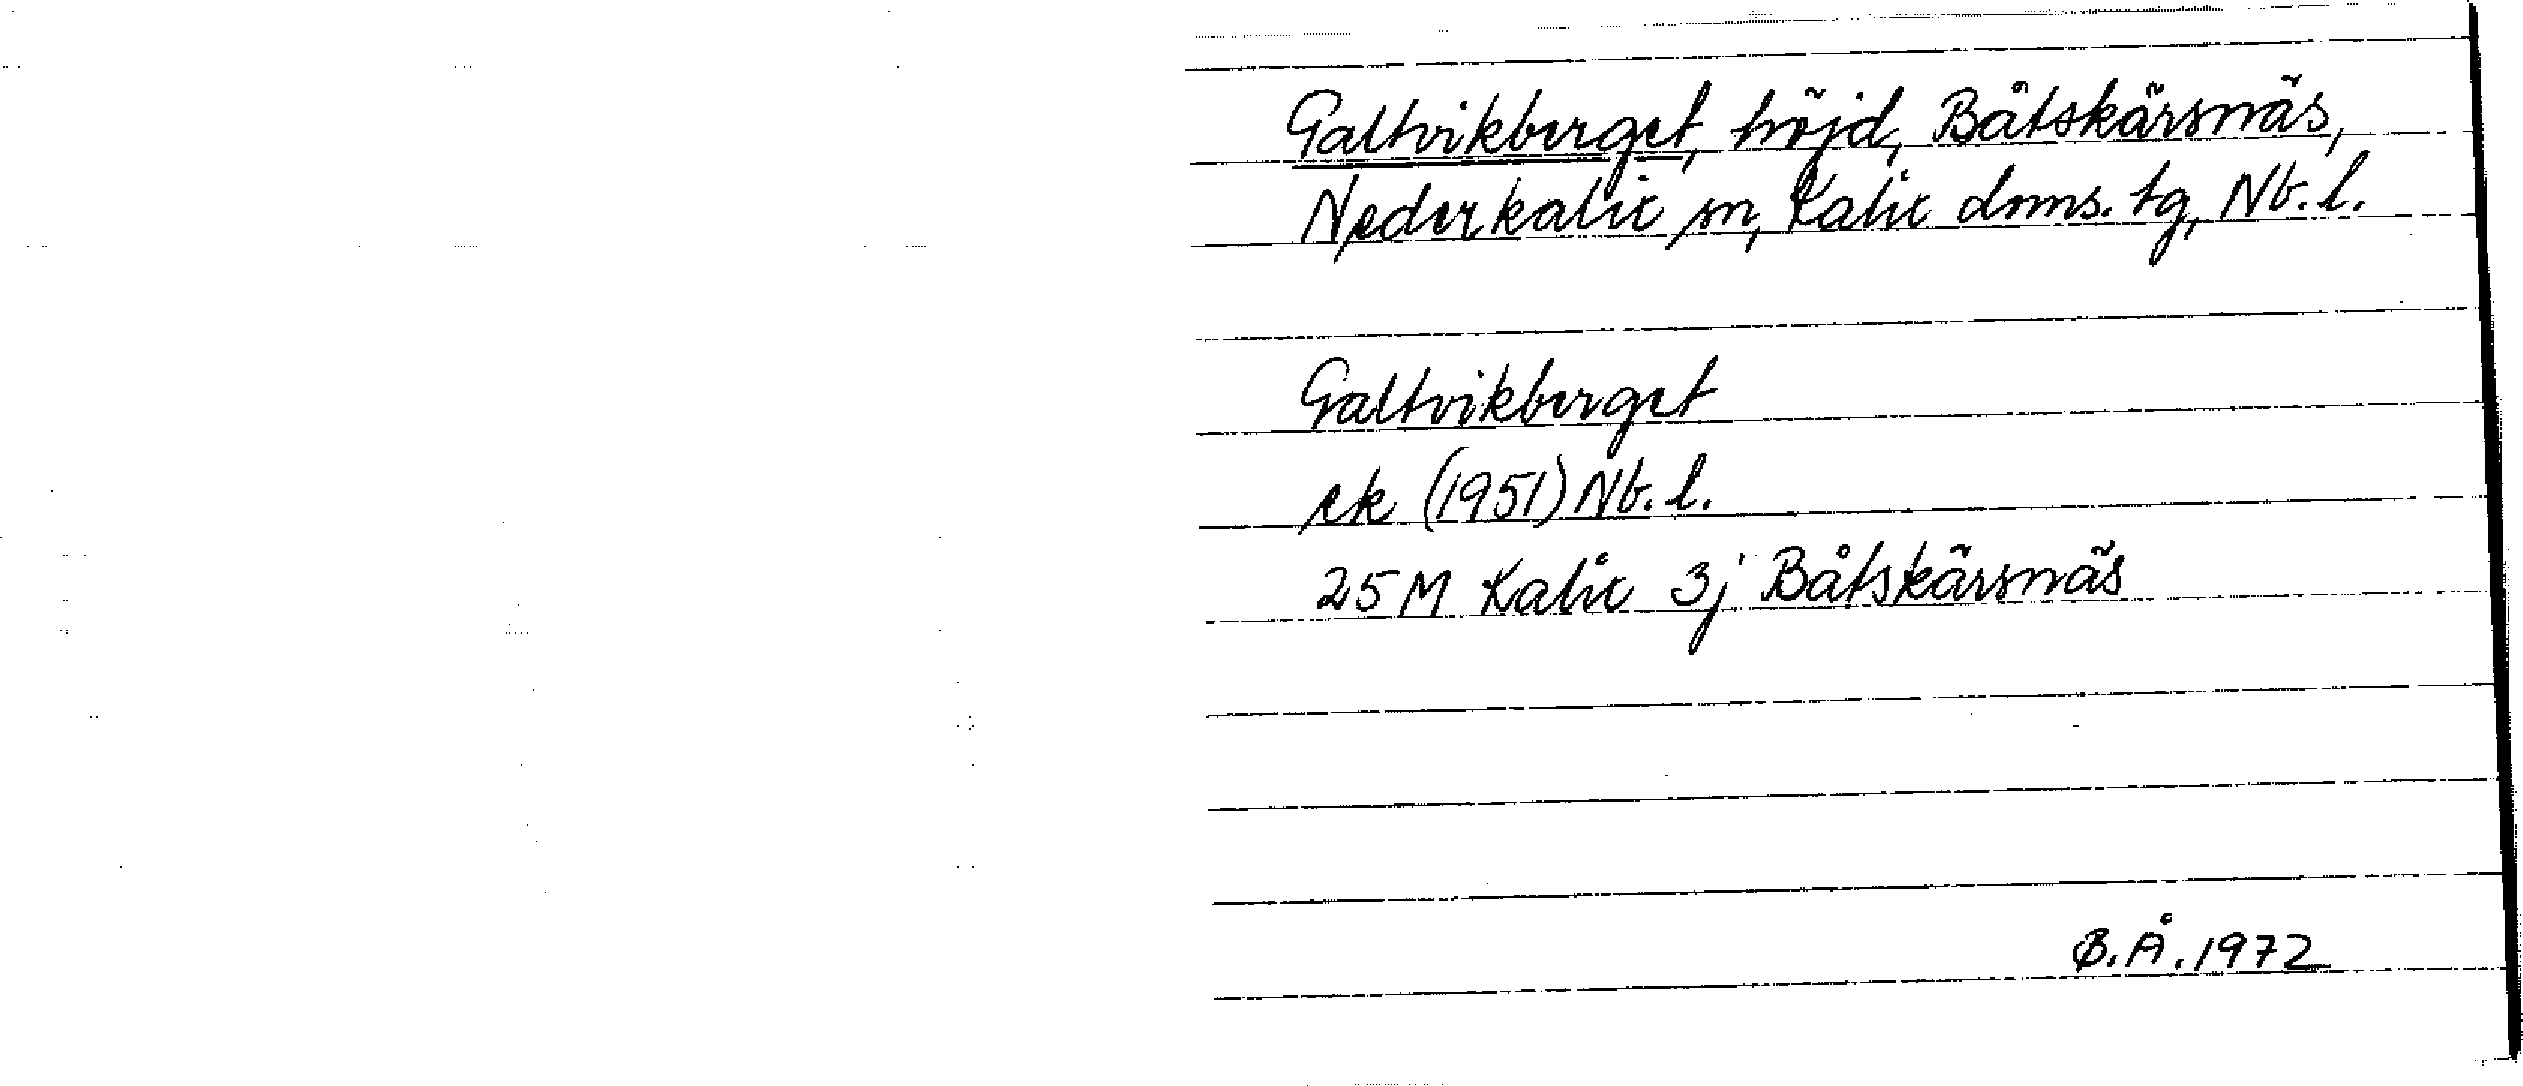 Galtvikberget, höjd, Båtskärsnäs,
Nederkalix sn, Kalix doms. tg, Nb. l.
Galtvikberget
ek (1951) Nb. l.
25 M Kalix 3j Båtskärsnäs
B.Å. 1972